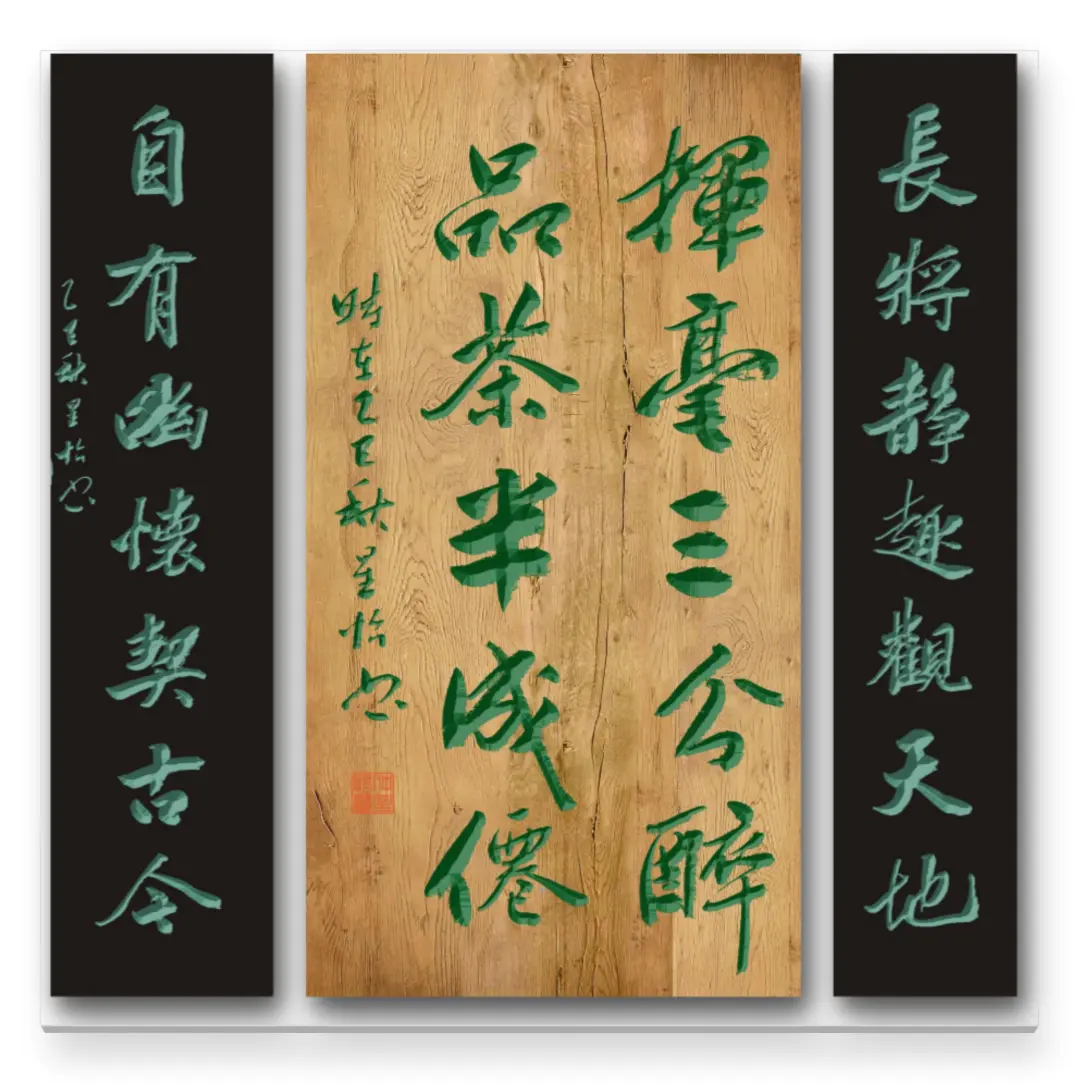 長將靜趣觀天地
揮毫三分醉
品茶半成僊
時在乙巳秋星怡書
自有幽懷契古今
乙巳秋星怡书